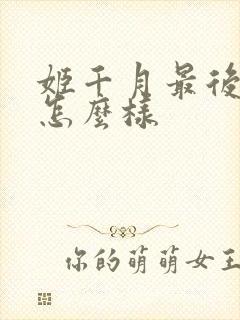 姬千月最後
怎麼樣
你的萌萌女王